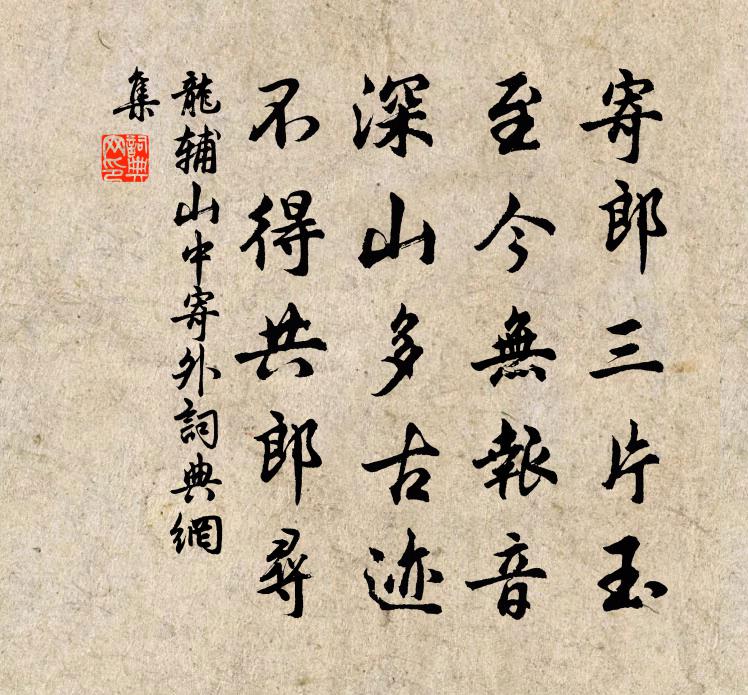 寄郎三片玉
至今無報音
深山多古迹
不得共郎尋
龍輔山中寄外詞典網
集
詞典
网印